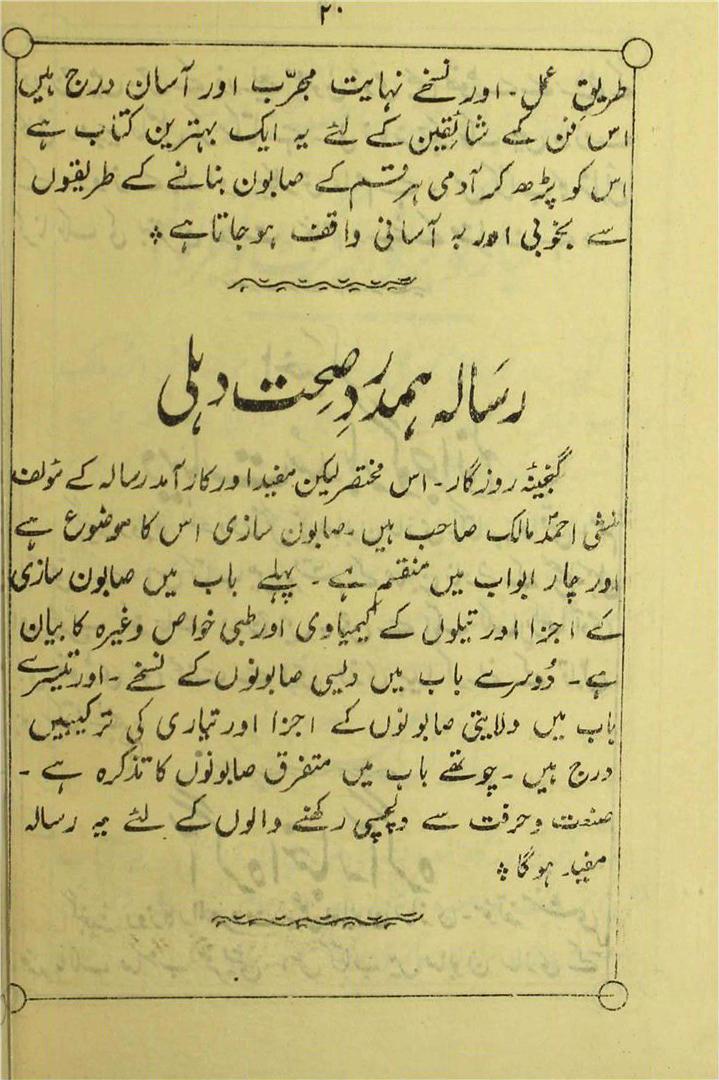 ۲۰
طریقِ عمل۔ اور نسخے نہایت مجرّب اور آسان درج ہیں
اس فن کے شائقین کے لئے یہ ایک بہترین کتاب ہے
اس کو پڑھ کر آدمی ہر قسم کے صابون بنانے کے طریقوں
سے بخوبی اور بہ آسانی واقف ہو جاتا ہے ؞
رسالہ ہمدردِ صحت دہلی
گنجینۂ روزگار۔ اس مختصر لیکن مفید اور کار آمد رسالہ کے مؤلف
منشی احمدؐ مالک صاحب ہیں۔ صابون سازی اس کا موضوع ہے
اور چار ابواب میں منقسم ہے۔ پہلے باب میں صابون سازی
کے اجزا اور تیلوں کے کیمیاوی اور طبی خواص وغیرہ کا بیان
ہے۔ دُوسرے باب میں دیسی صابونوں کے نسخے۔ اور تیسرے
باب میں ولایتی صابونوں کے اجزا اور تیاری کی ترکیبیں
درج ہیں۔ چوتھے باب میں متفرق صابونوں کا تذکرہ ہے۔
صنعت و حرفت سے دلچسپی رکھنے والوں کے لئے یہ رسالہ
مفید ہوگا ؞